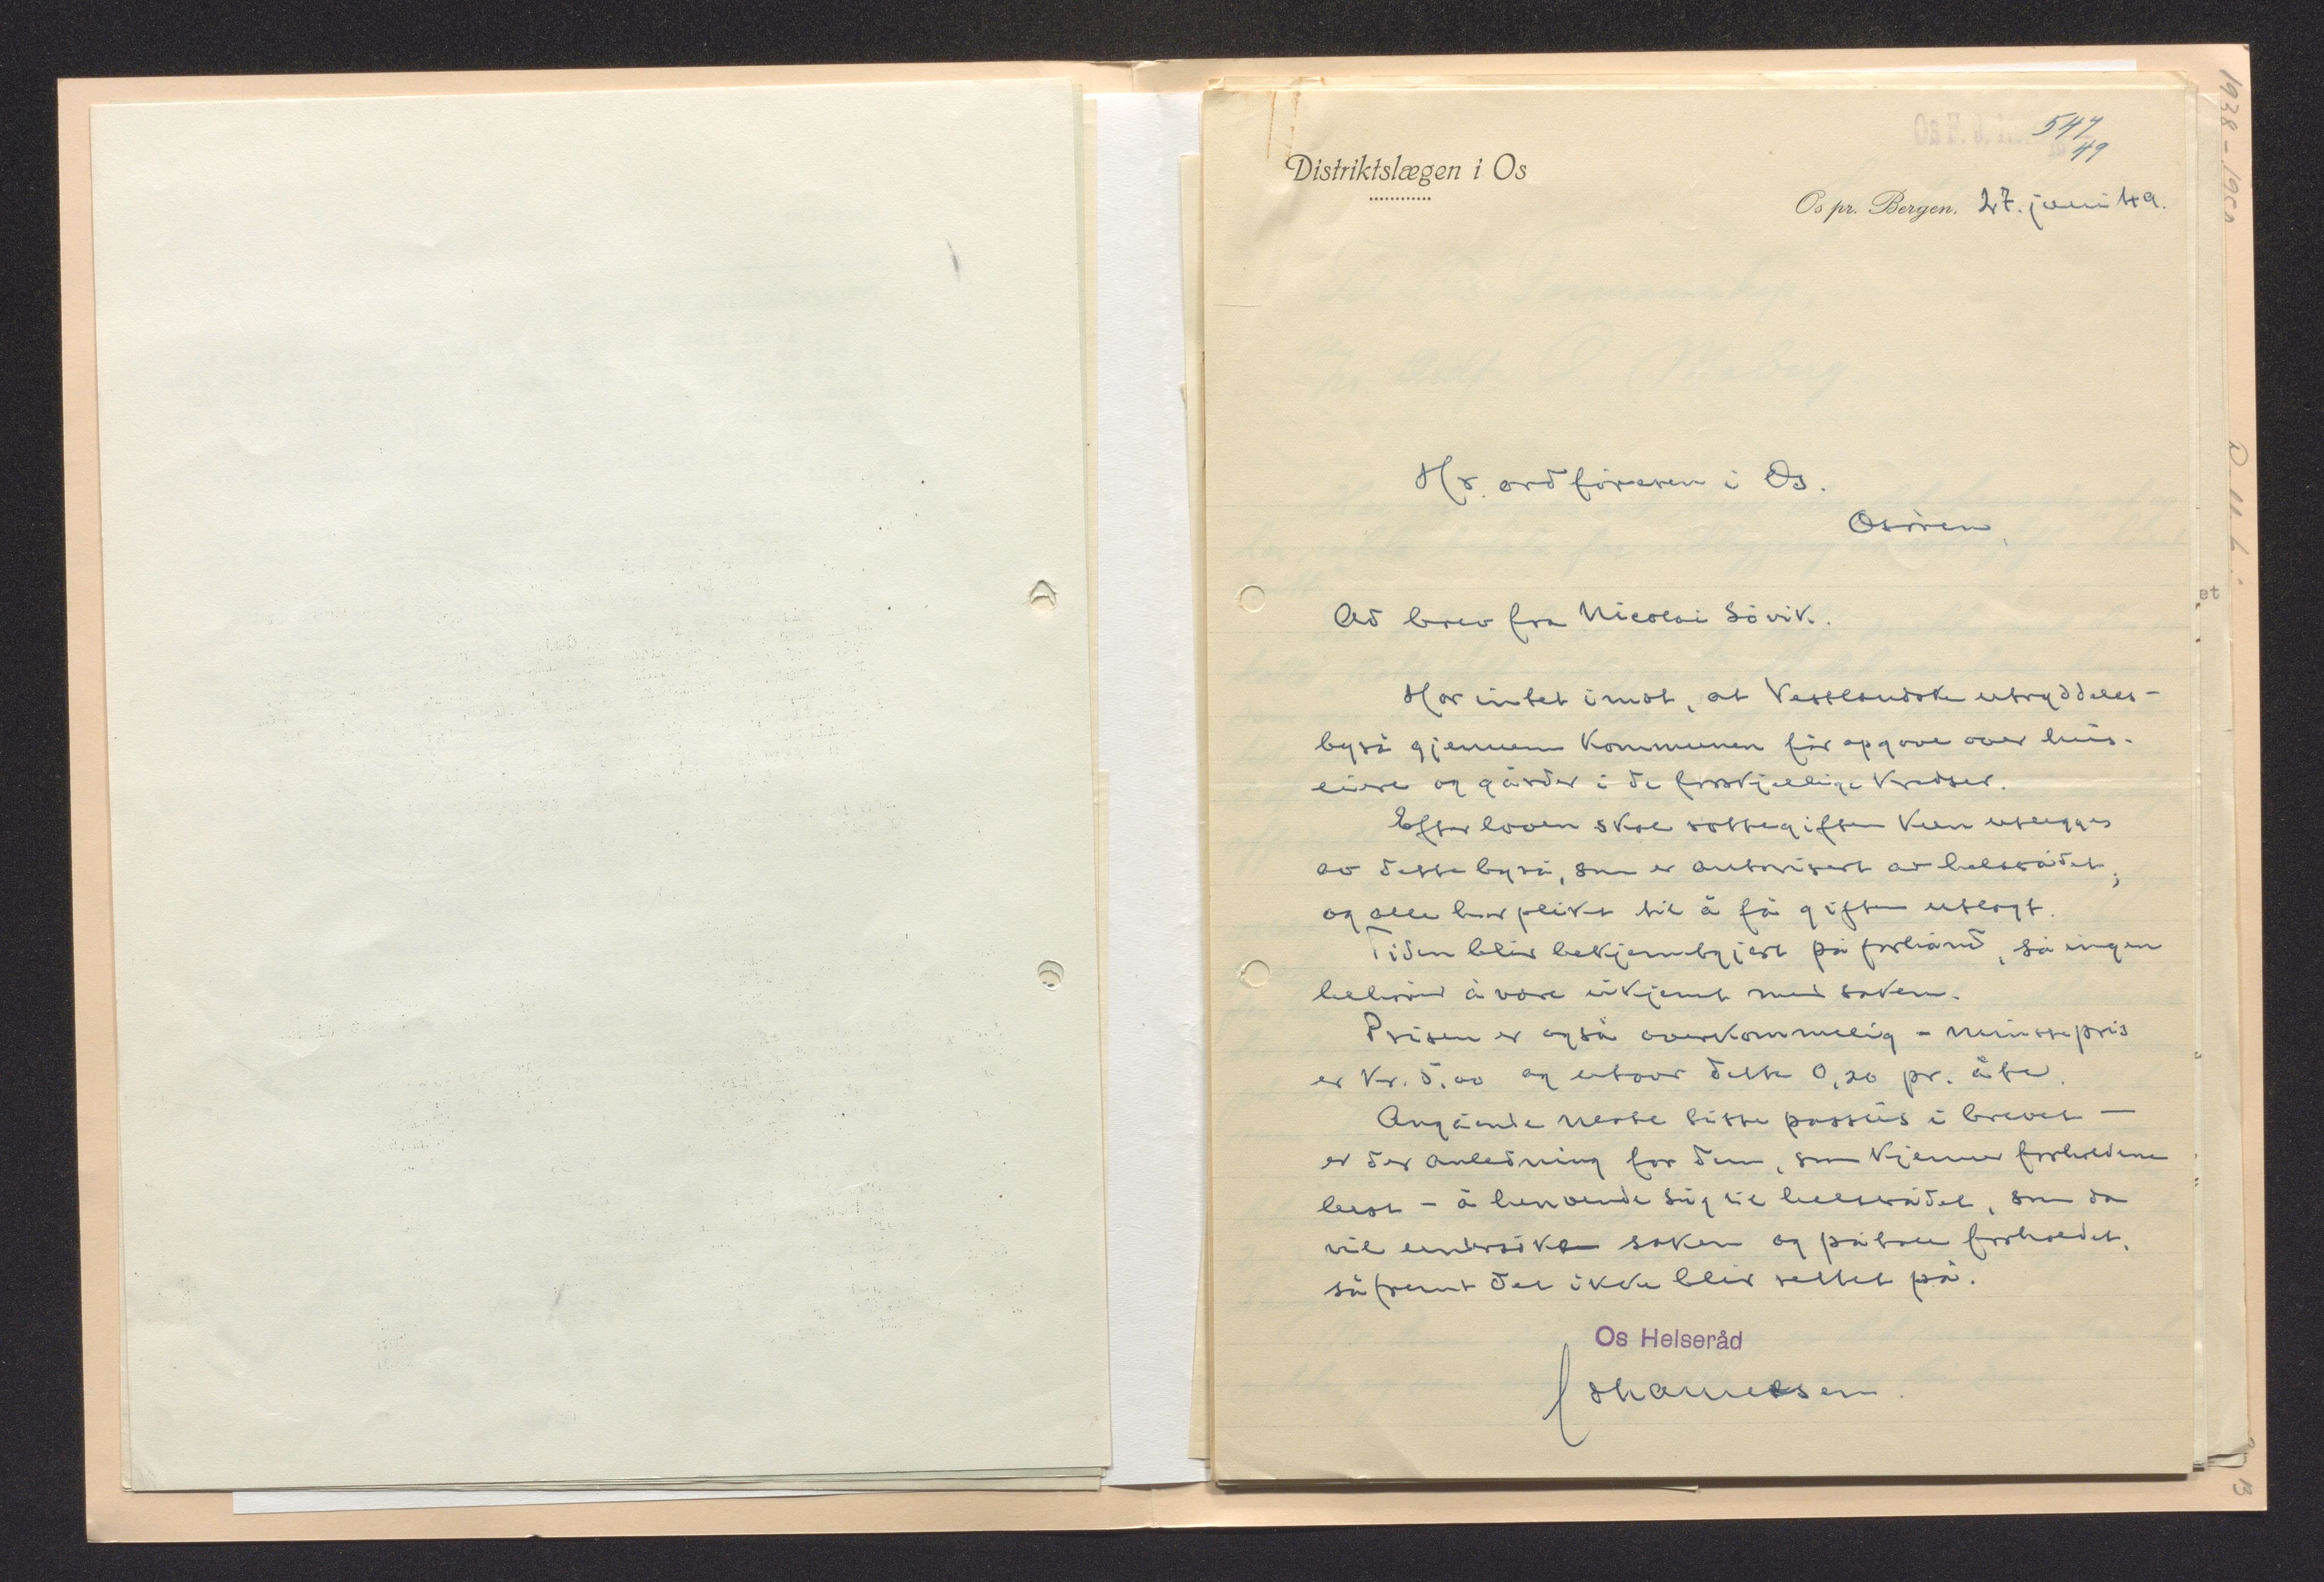 547
49
Distriktslægen i Os
Os pr. Bergen, 27. juni 49.
Hr. ordføreren i Os.
Osøren.
Ad brev fra Nicolai Søvik.
Har intet imot, at Vestlandske utryddeles-
byrå gjennem kommunen får opgave over hus-
eiere og gårder i de forskjellige kredser.
Efter loven skal rottegiften kun utlegges
av dette byrå, som er autorisert av helserådet,
og alle har plikt til å få giften utlagt.
Tiden blir bekjentgjort på forhånd, så ingen
behøver å være ukjent med saken.
Prisen er også overkommelig - minstepris
er kr. 5,00 og utover dette 0,20 pr. åte.
Angående neste siste passus i brevet -
er der anledning for dem, som kjenner forholdene
best - å henvende sig til helserådet, som da
vil undersøke saken og påtale forholdet,
såfremt det ikke blir rettet på.
Os Helseråd
Johannessen.
1938-1950
et